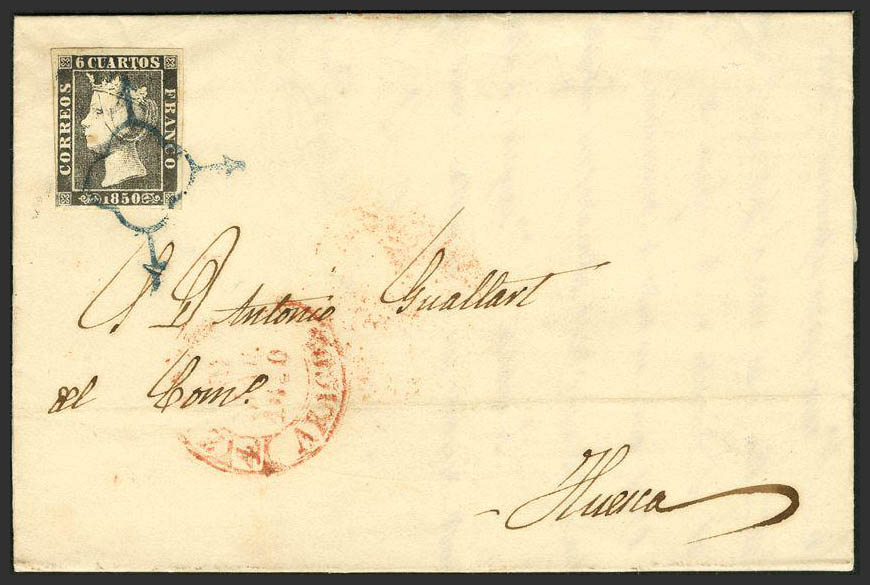 6 CUARTOS
CORREOS
FRANCO
1850
S. D. Antonio Guallart
del Comº
Huesca